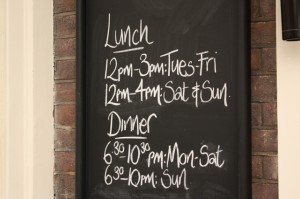 Lunch
12pm-3pm: Tues-Fri
12pm-4pm: Sat & Sun
Dinner
6.30-10.30pm: Mon-Sat
6.30-10pm: Sun